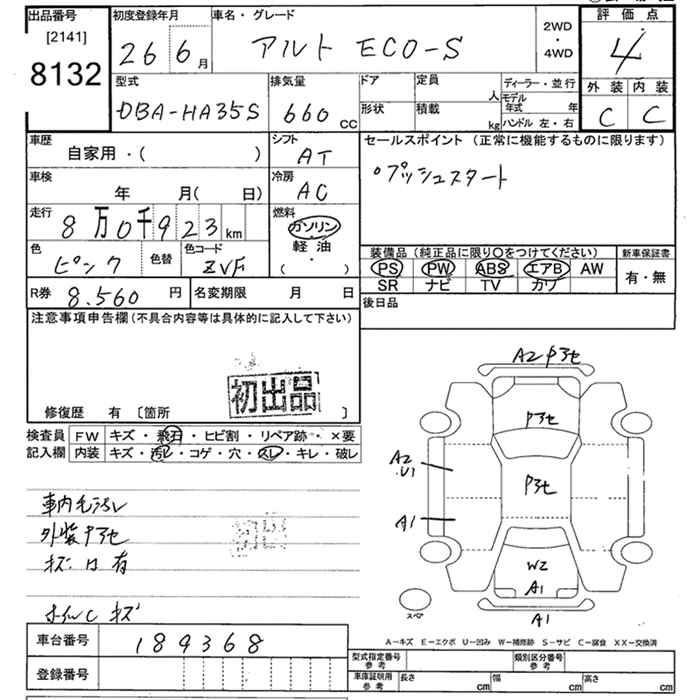 出品番号 初度登録年月 車名・グレード 2WD・4WD 評価点
[2141]
8132 26 6月 アルト ECO-S 4
型式 排気量 ドア 定員 人 ディーラー・並行 外装 内装
DBA-HA35S 660 CC 形状 積載 kg モデル年式 年 C C
ハンドル 左・右
車歴 シフト セールスポイント (正常に機能するものに限ります)
自家用・( ) AT
車検 冷房 プッシュスタート
年 月( 日) AC
走行 燃料
8万0千923 km ガソリン
色 色替 色コード 軽油 装備品 (純正品に限り〇をつけてください) 新車保証書
ピンク ZVF ( ・ ) PS PW ABS エアB AW 有・無
R券 8.560 円 名変期限 月 日 SR ナビ TV カワ
後日品
注意事項申告欄 (不具合内容等は具体的に記入して下さい)
初出品
修復歴 有 〔箇所 〕
検査員 FW キズ・飛石・ヒビ割・リペア跡・×要
記入欄 内装 キズ・汚レ・コゲ・穴・スレ・キレ・破レ
A2
A2
U1
A1
W2
A1
A1
スペア
車内 汚レ
外装
キズ 有
キズ
A-キズ E-エクボ U-凹み W-補修跡 S-サビ C-腐食 XX-交換済
車台番号 189368
型式指定番号 参考 類別区分番号 参考
登録番号
車庫証明用 参考 長さ cm 幅 cm 高さ cm